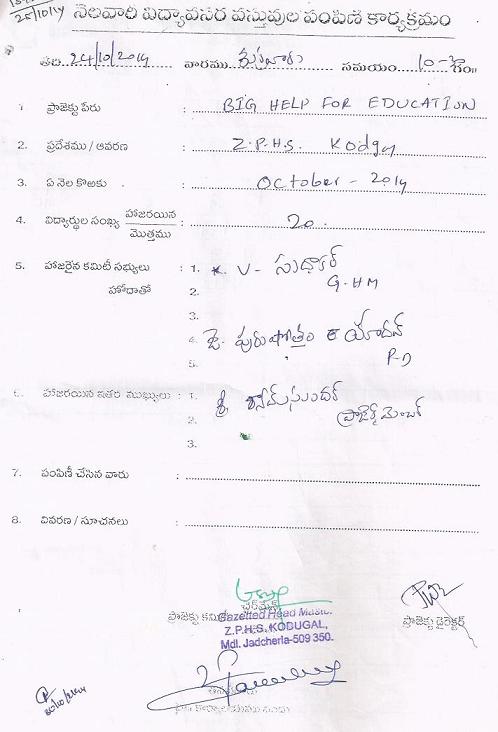 25/10/14
నెలవారి విద్యావసర వస్తువుల పంపిణి కార్యక్రమం
తేది 24/10/2014 వారము శుక్రవారం సమయం 10-
1 ప్రాజెక్టు పేరు : BIG HELP FOR EDUCATION
2. ప్రదేశము / ఆవరణ : Z.P.H.S. Kodgal
3. ఏ నెల కొఱకు : October - 2014
4. విద్యార్థుల సంఖ్య హాజరయిన : 20
మొత్తము
5. హాజరైన కమిటీ సభ్యులు : 1. K. V- సుధాకర్
హోదాతో 2. G-HM
3.
4. జె. పురుషోత్తం యాదవ్
5. P-D
6. హాజరయిన ఇతర ముఖ్యులు : 1. శ్రీ శ్యామ్‌సుందర్
2. ప్రాజెక్ట్ మెంబర్
3.
7. పంపిణీ చేసిన వారు :
8. వివరణ / సూచనలు :
చైర్మన్
ప్రాజెక్టు కమిటీ
Gazetted Head Master
Z.P.H.S. KODUGAL,
Mdl. Jadcherla-509 350.
ప్రాజెక్టు డైరెక్టర్